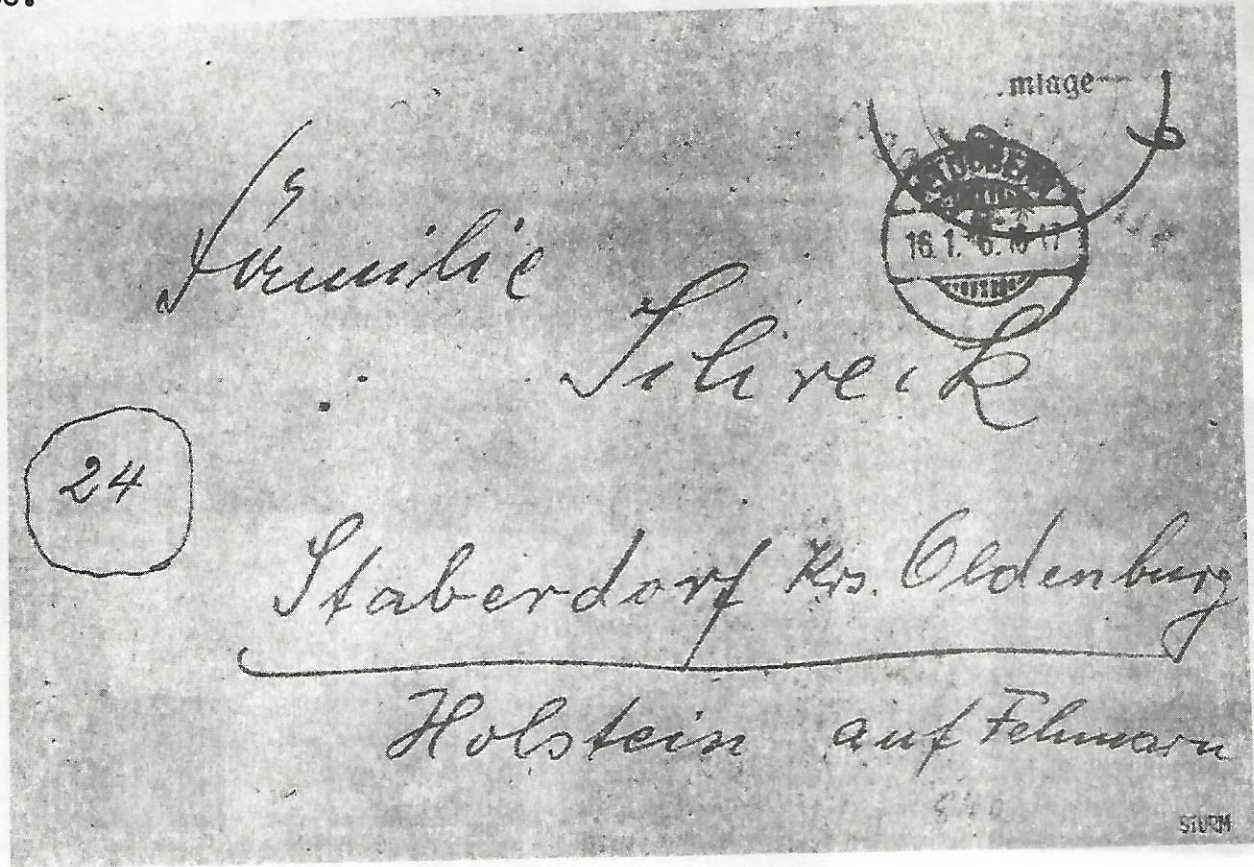 mlage
16.1. 6. 16-17
Familie
Schreck
24
Staberdorf Krs. Oldenburg
Holstein auf Fehmarn
STURM